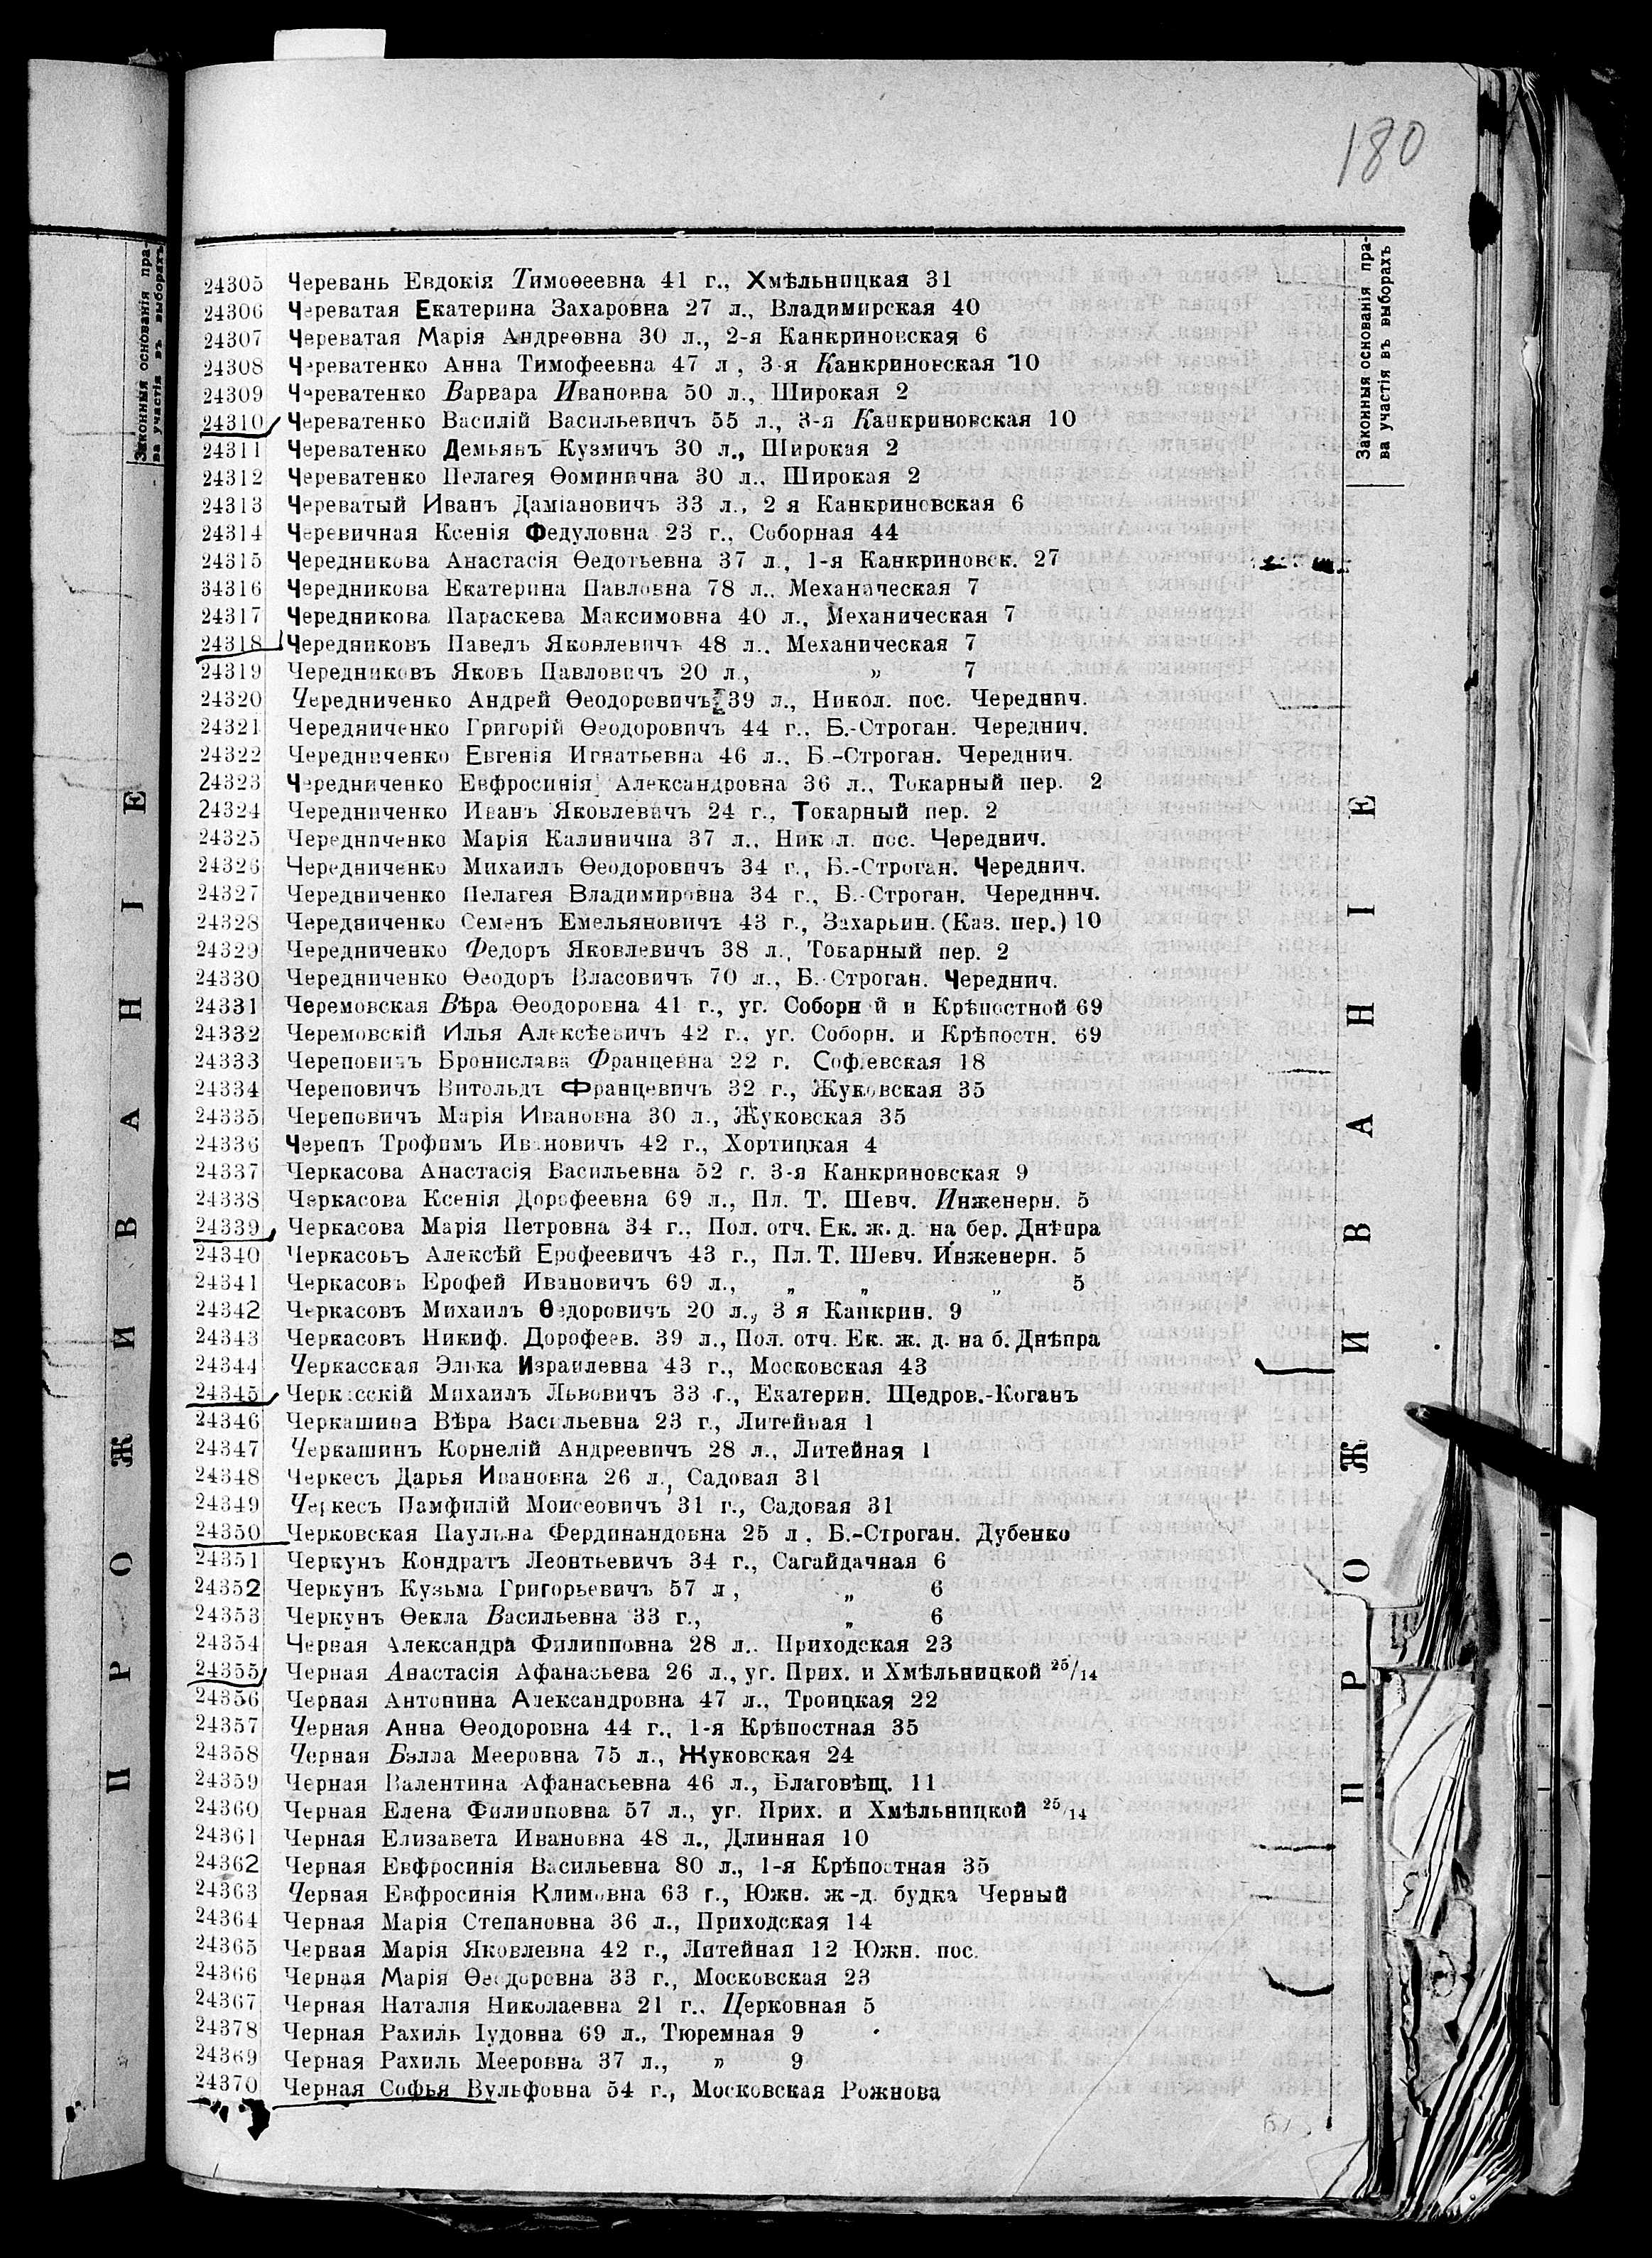 180
Законныя основанія пра-
ва участія въ выборахъ
ПРОЖИВАНІЕ
24305 Черевань Евдокія Тимоѳеевна 41 г., Хмѣльницкая 31
24306 Череватая Екатерина Захаровна 27 л., Владимирская 40
24307 Череватая Марія Андреевна 30 л., 2-я Канкриновская 6
24308 Череватенко Анна Тимофеевна 47 л , 3-я Канкриновская 10
24309 Череватенко Варвара Ивановна 50 л., Широкая 2
24310 Череватенко Василій Васильевичъ 55 л., 3-я Канкриновская 10
24311 Череватенко Демьянъ Кузмичъ 30 л., Широкая 2
24312 Череватенко Пелагея Ѳоминична 30 л.. Широкая 2
24313 Череватый Иванъ Даміановичъ 33 л., 2 я Канкриновская 6
24314 Черевичная Ксенія Федуловна 23 г., Соборная 44
24315 Чередникова Анастасія Ѳедотьевна 37 л., 1-я Канкриновск. 27
34316 Чередникова Екатерина Павловна 78 л.. Механическая 7
24317 Чередникова Параскева Максимовна 40 л., Механическая 7
24318 Чередниковъ Павелъ Яковлевичъ 48 л.. Механическая 7
24319 Чередниковъ Яковъ Павловичъ 20 л., „ 7
24320 Чередниченко Андрей Ѳеодоровичъ 39 л., Никол. пос. Череднич.
24321 Чередниченко Григорій Ѳеодоровичъ 44 г.. Б.-Строган. Череднич.
24322 Чередниченко Евгенія Игнатьевна 46 л.. Б.-Строган. Череднич.
24323 Чередниченко Евфросинія Александровна 36 л.. Токарный пер. 2
24324 Чередниченко Иванъ Яковлевичъ 24 г., Токарный пер. 2
24325 Чередниченко Марія Калинична 37 л.. Ник л. пос. Череднич.
24326 Чередниченко Михаилъ Ѳеодоровичъ 34 г., Б.-Строган. Череднич.
24327 Чередниченко Пелагея Владимировна 34 г., Б.-Строган. Череднич.
24328 Чередниченко Семенъ Емельяновичъ 43 г., Захарьин. (Каз. пер.) 10
24329 Чередниченко Федоръ Яковлевичъ 38 л., Токарный пер. 2
24330 Чередниченко Ѳеодоръ Власовичъ 70 л., Б.-Строган. Череднич.
24331 Черемовская Вѣра Ѳеодоровна 41 г., уг. Соборн й и Крѣпостной 69
24332 Черемовскій Илья Алексѣевичъ 42 г., уг. Соборн. и Крѣпостн. 69
24333 Череповичъ Бронислава Францевна 22 г. Софіевская 18
24334 Череповичъ Витольдъ Францевичъ 32 г., Жуковская 35
24335 Череповичъ Марія Ивановна 30 л., Жуковская 35
24336 Черепъ Трофимъ Ивановичъ 42 г., Хортицкая 4
24337 Черкасова Анастасія Васильевна 52 г. 3-я Канкриновская 9
24338 Черкасова Ксенія Дорофеевна 69 л., Пл. Т. Шевч. Инженерн. 5
24339 Черкасова Марія Петровна 34 г., Пол. отч. Ек. ж. д. на бер. Днѣпра
24340 Черкасовъ Алексѣй Ерофеевичъ 43 г., Пл. Т. Шевч. Инженерн. 5
24341 Черкасовъ Ерофей Ивановичъ 69 л., „ „ „ 5
24342 Черкасовъ Михаилъ Ѳедоровичъ 20 л., 3 я Канкрин. 9
24343 Черкасовъ Никиф. Дорофеев. 39 л., Пол. отч. Ек. ж. д. на б. Днѣпра
24344 Черкасская Элька Израилевна 43 г., Московская 43
24345 Черкасскій Михаилъ Львовичъ 33 г., Екатерин. Щедров.-Коганъ
24346 Черкашина Вѣра Васильевна 23 г., Литейная 1
24347 Черкашинъ Корнелій Андреевичъ 28 л., Литейная 1
24348 Черкесъ Дарья Ивановна 26 л., Садовая 31
24349 Черкесъ Памфилій Моисеовичъ 31 г., Садовая 31
24350 Черковская Паульна Фердинандовна 25 л. Б.-Строган. Дубенко
24351 Черкунъ Кондратъ Леонтьевичъ 34 г., Сагайдачная 6
24352 Черкунъ Кузьма Григорьевичъ 57 л , „ 6
24353 Черкунъ Ѳекла Васильевна 33 г., „ 6
24354 Черная Александра Филипповна 28 л.. Приходская 23
24355 Черная Анастасія Афанасьева 26 л., уг. Прих. и Хмѣльницкой 25/14
24356 Черная Антонина Александровна 47 л., Троицкая 22
24357 Черная Анна Ѳеодоровна 44 г., 1-я Крѣпостная 35
24358 Черная Бэлла Мееровна 75 л., Жуковская 24
24359 Черная Валентина Афанасьевна 46 л., Благовѣщ. 11
24360 Черная Елена Филипповна 57 л., уг. Прих. и Хмѣльницкой 25/14
24361 Черная Елизавета Ивановна 48 л., Длинная 10
24362 Черная Евфросинія Васильевна 80 л., 1-я Крѣпостная 35
24363 Черная Евфросинія Климовна 63 г., Южн. ж-д. будка Черный
24364 Черная Марія Степановна 36 л., Приходская 14
24365 Черная Марія Яковлевна 42 г., Литейная 12 Южн. пос.
24366 Черная Марія Ѳеодоровна 33 г., Московская 23
24367 Черная Наталія Николаевна 21 г.. Церковная 5
24378 Черная Рахиль Іудовна 69 л., Тюремная 9
24369 Черная Рахиль Мееровна 37 л., „ 9
24370 Черная Софья Вульфовна 54 г., Московская Рожнова
Законныя основанія пра-
ва участія въ выборахъ
ПРОЖИВАНІЕ